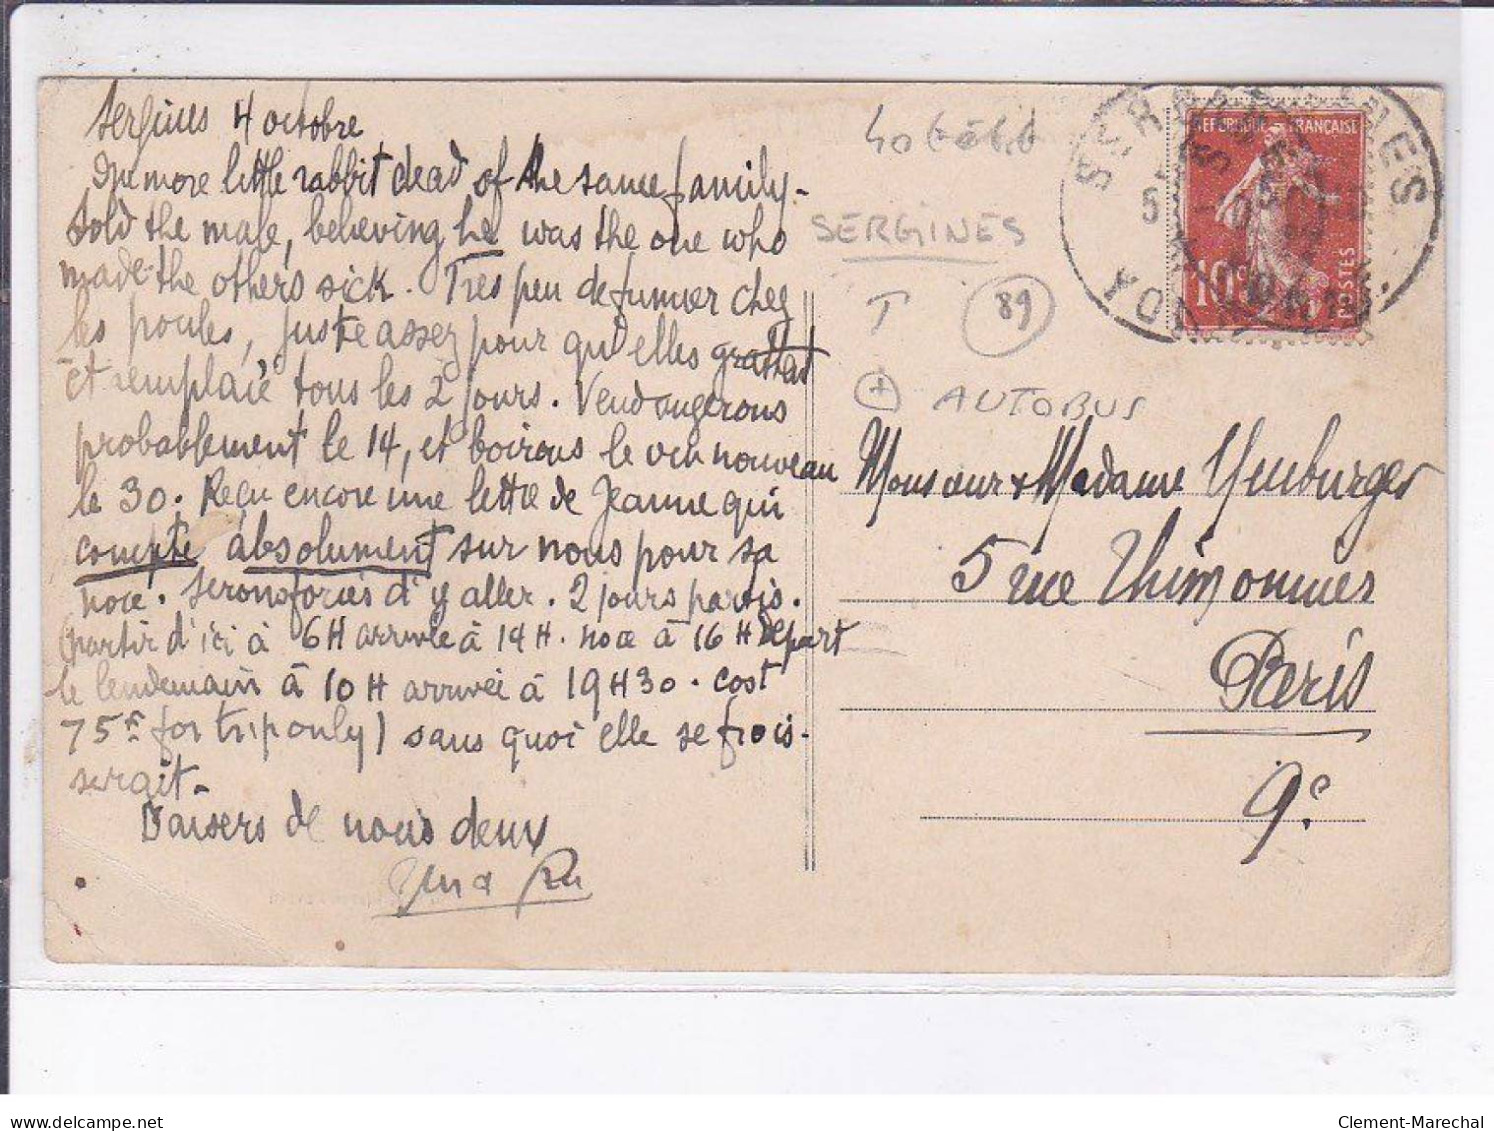 Sergines 4 octobre
One more little rabbit dead of the same family -
Sold the male, believing he was the one who
made the others sick. Très peu de fumier chez
les poules, juste assez pour qu'elles grattent
et remplacé tous les 2 jours. Vendangerons
probablement le 14, et boirons le vin nouveau
le 30. Reçu encore une lettre de Jeanne qui
compte absolument sur nous pour sa
noce. Serons forcés d'y aller. 2 jours partis.
(partir d'ici à 6H arrivée à 14H. noce à 16H départ
le lendemain à 10H arrivée à 19H30. cost
75f for trip only) sans quoi elle se frois-
serait.
Baisers de nous deux
SERGINES
T
89
+ AUTOBUS
SERGINES
5
YONNE
REPUBLIQUE FRANÇAISE
10c
POSTES
Monsieur & Madame
5 rue Thimonnier
Paris
9e
Clement-Marechal
delcampe.net